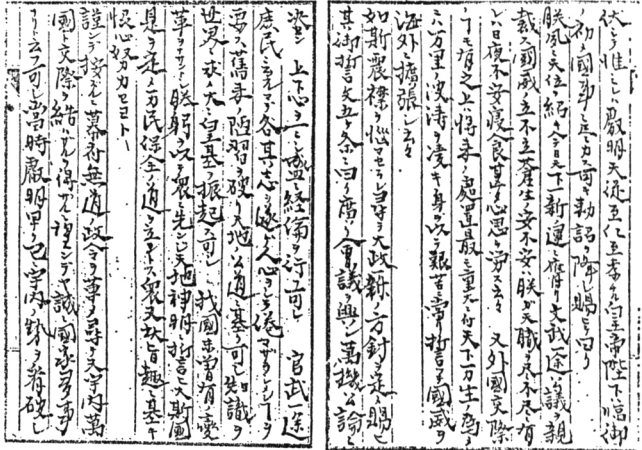 伏シテ惟ルニ叡明天縦至仁至孝ナル皇帝陛下臨御
ノ初メ國事ヲ定ムルニ方テ勅詔ヲ降シ賜ヒ曰ク
朕夙ニ天位ヲ紹キ今日天下一新ノ運ニ膺リ文武一途公議ヲ親
裁ス國威ノ立不立蒼生ノ安不安ハ朕カ天職ヲ尽不尽ニ有
レハ日夜不安寝食甚タ心思ヲ労ス云々 又外國交際
ノコト有之上ハ将来ノ處置最モ重大ニ付天下万生ノ為ニ
ハ万里ノ波涛ヲ凌キ身ヲ以テ艱苦ニ當リ誓テ國威ヲ
海外ニ擴張シ云々
如斯宸襟ヲ悩マセラレ尋テ大政一新ノ方針ヲ定メ賜ヒ
其御誓文五ケ条ニ曰ク廣ク會議ヲ興シ萬機公論ニ
決シ 上下心ヲ一ニシ盛ニ經綸ヲ行フ可シ 官武一途
庶民ニ至ルマテ各其志ヲ遂ケ人心ヲシテ倦マザラシメン事ヲ
要ス 舊来ノ陋習ヲ破リ天地ノ公道ニ基ク可シ 智識ヲ
世界ニ求メ大ニ皇基ヲ振起ス可シ 我國未曽有ノ変
革ヲ為サントシ朕躬ヲ以テ衆ニ先シ天地神明ニ誓ヒ大ニ斯國
是ヲ定メ万民保全ノ道ヲ立ントス衆又此旨趣ニ基キ
恊心努力セヨト
謹ンテ按スルニ幕府無道政令ヲ 宇内萬
國ト交際ヲ締 理 誠ニ國家多事
ト云フ可シ當時叡明早ク已ニ宇内ノ勢ヲ